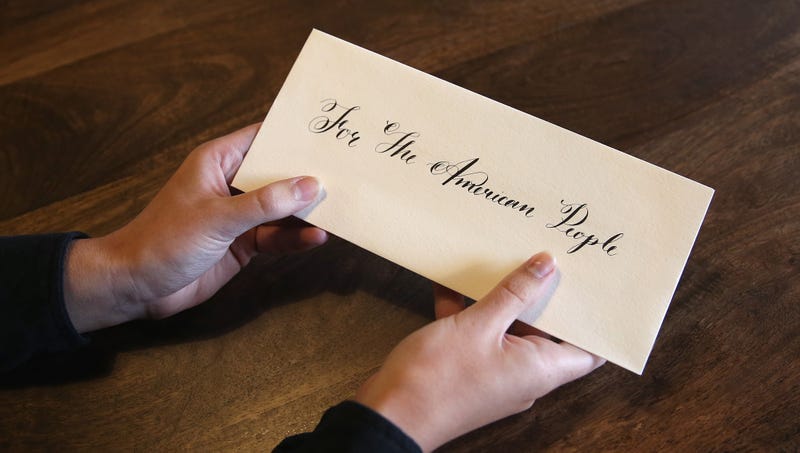 For The American People